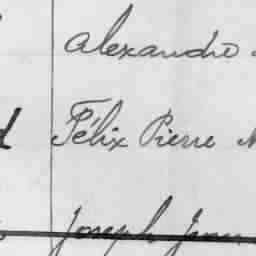 Alexandre
Félix Pierre
Joseph